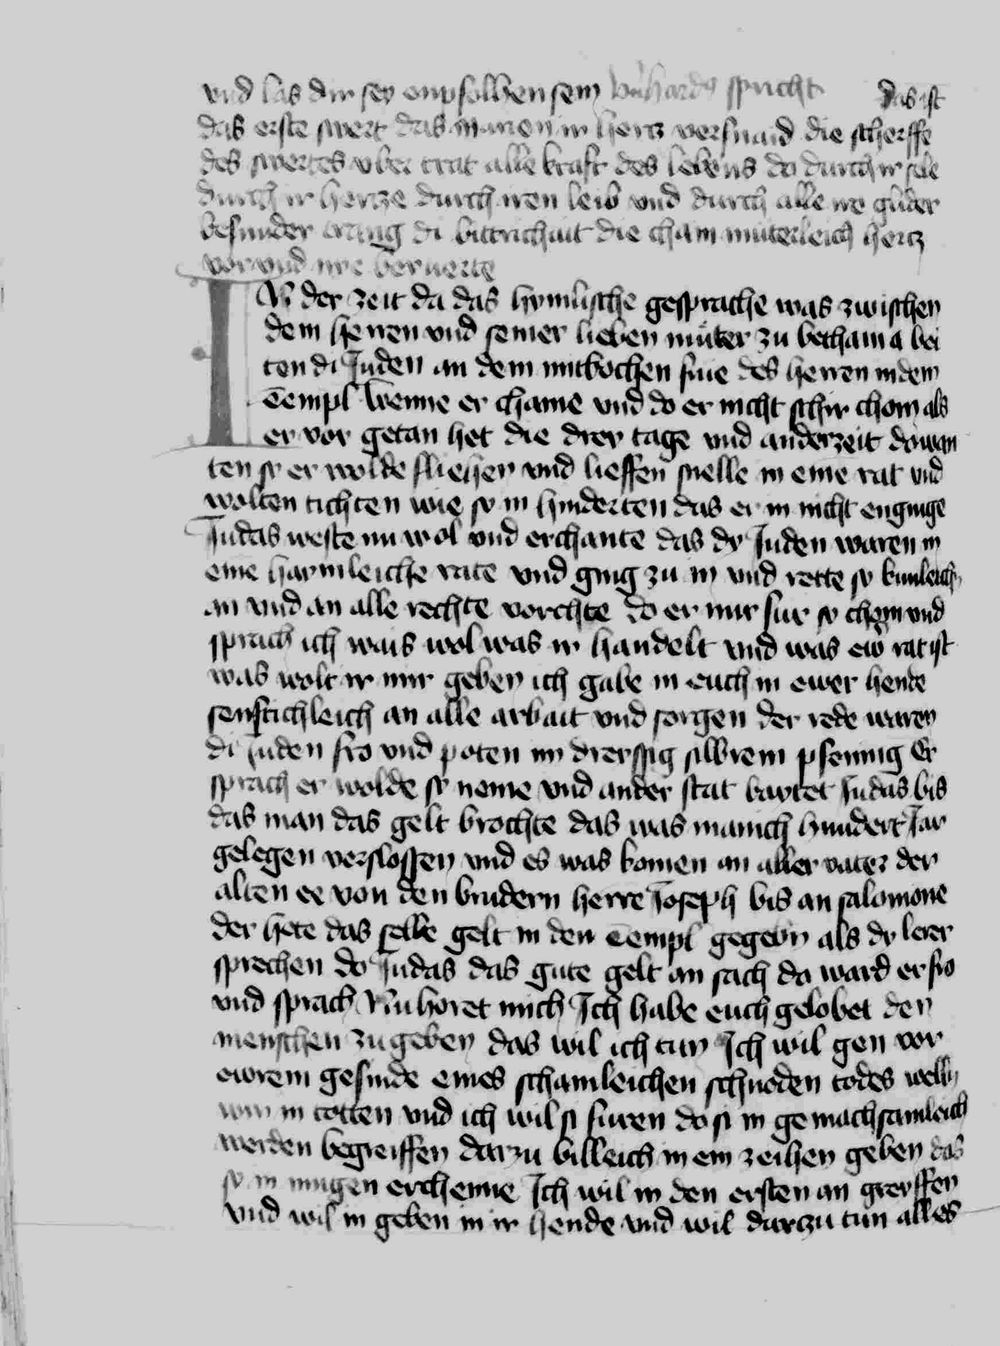 vnd las dir sey enpfolhen sein bernhardus spricht das ist
das erste swert das marien ir hertz versnaid die scherffe
des swertes vber trat alle kraft des lebens do durch ir sele
durch ir hertze durch iren leib vnd durch alle ire glider
besunder drang di bittrichait die cham muterleich hertz
vor vnd nye beruerte
IN der zeit da das hymlische gesprache was zwischen
dem herren vnd seiner lieben mûter zu bethania bei
ten di Juden an dem mitbochen frue des herren in dem
Templ wenne er chame vnd do er nicht schir chom als
er vor getan het die drey tage vnd anderzeit do wan
ten sy er wolde fliehen vnd lieffen snelle in eine rat vnd
wolten tichten wie sy in hinderten das er in nicht enginge
Judas weste nu wol vnd erchante das dy Juden waren in
eine haimleiche rate vnd ging zu in vnd rette sy kunleich
an vnd an alle rechte vorchte do er nur fur sy chom vnd
sprach ich wais wol was ir handelt vnd was ew rat ist
was wolt ir mir geben ich gabe in euch in ewer hende
senftichleich an alle arbait vnd sorgen der rede waren
di Juden fro vnd poten im dreyssig silbrein pfennig Er
sprach er wolde sy neme vnd ander stat bartet Judas bis
das man das gelt brochte das was manich hundert Jar
gelegen verslossen vnd es was komen an aller vater der
alten ee von den brudern herre Joseph bis an salomone
der hete das selbe gelt in den Templ gegebn als dy lerer
sprechen do Judas das gute gelt an sach da ward er fro
vnd sprach Nu horet mich Ich habe euch gelobet den
menschen zu geben das wil ich tun Ich wil gen vor
ewrem gesinde eines schamleichen schnoden todes welln
wir in totten vnd ich wil si furen do si in gemachsamleich
werden begreiffen darzu billeich in ein zeihen geben das
sy in mugen erchenne Ich wil in den ersten an greyffen
vnd wil in geben in ir hende vnd wil darzu tun alles